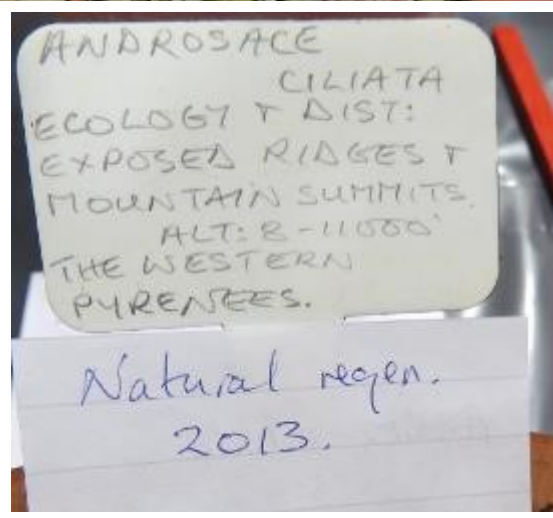 ANDROSACE
CILIATA
ECOLOGY & DIST:
EXPOSED RIDGES &
MOUNTAIN SUMMITS.
ALT: 8-11000'
THE WESTERN
PYRENEES.
Natural regen.
2013.